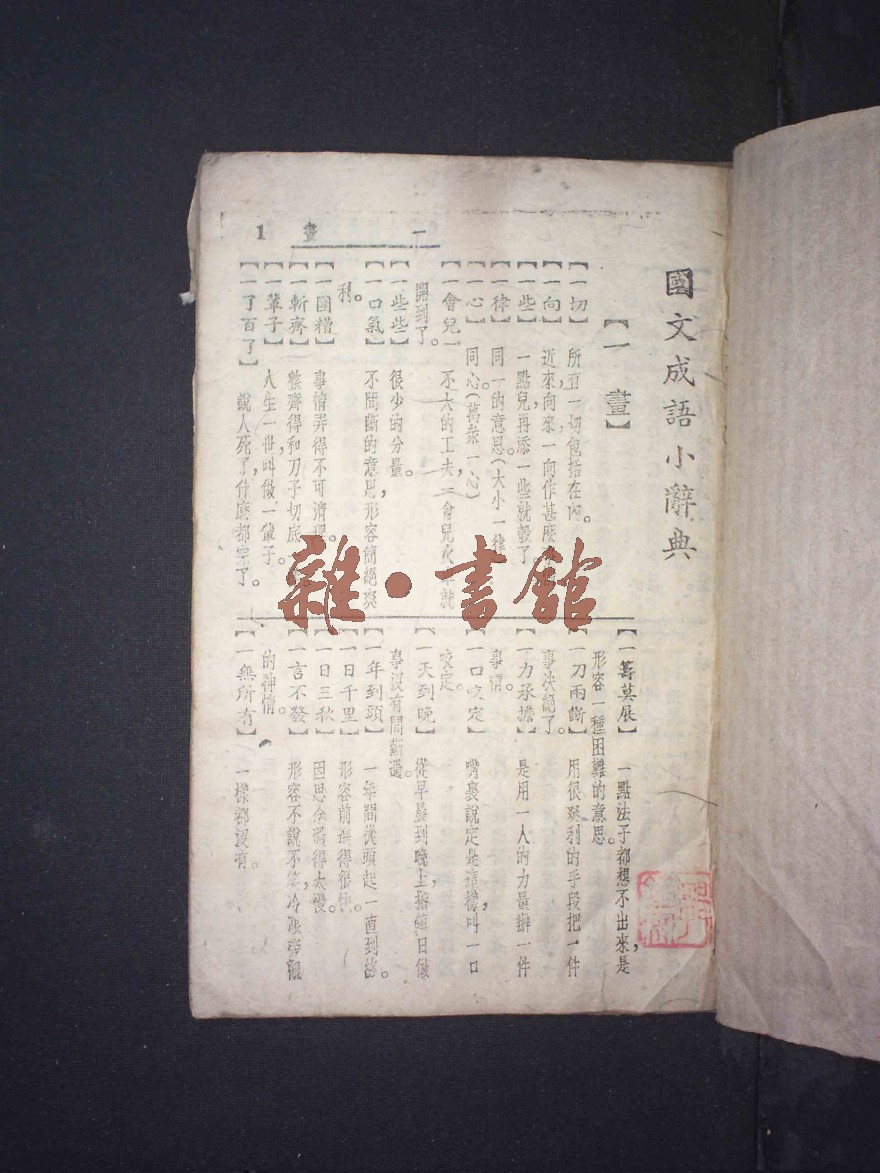 國文成語小辭典
【一畫】
【一切】 所有一切包括在內。
【一向】 近來,向來一向作甚麼
【一些】 一點兒,再添一些就彀了
【一律】 同一的意思。(大小一律
【一心】 同心。(萬衆一心)
【一會兒】 不大的工夫,一會兒火車就
開到了。
【一些些】 很少的分量。
【一口氣】 不間斷的意思,形容簡絕爽
利。
【一團糟】 事情弄得不可清理。
【一斬齊】 整齊得和刀子切底
【一輩子】 人生一世叫做一輩子。
【一了百了】 說人死了,什麼都完了。
【一籌莫展】 一點法子都想不出來,是
形容一種困難的意思。
【一刀兩斷】 用很爽利的手段把一件
事決絕了。
【一力承擔】 是用一人的力量辦一件
事情。
【一口咬定】 嘴裏說定是這樣,叫一口
咬定。
【一天到晚】 從早晨到晚上,擔鎮日做
事沒有間斷過。
【一年到頭】 一年間從頭起一直到
【一日千里】 形容前進得很快。
【一日三秋】 因思念過得太慢。
【一言不發】 形容不說不笑,冷眼旁觀
的神情。
【一無所有】 一樣都沒有。
一 畫 1
雜·書館